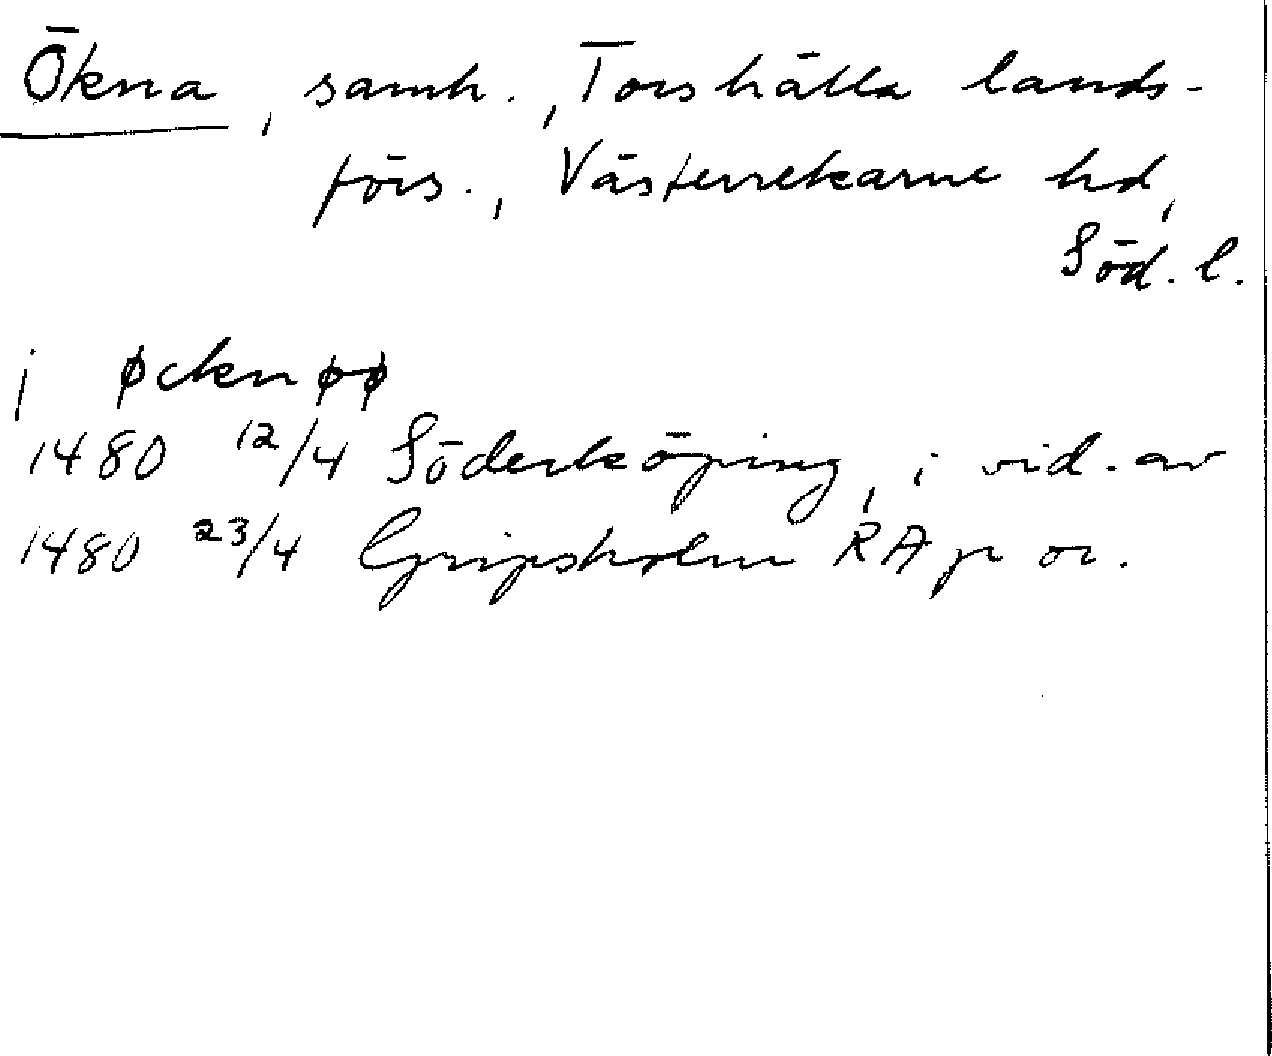 Ökna, samh., Torshälla lands-
förs., Västerrekarne hd,
Söd. l.
j øcknøø
1480 12/4 Söderköping, i vid. av
1480 23/4 Gripsholm RA p or.